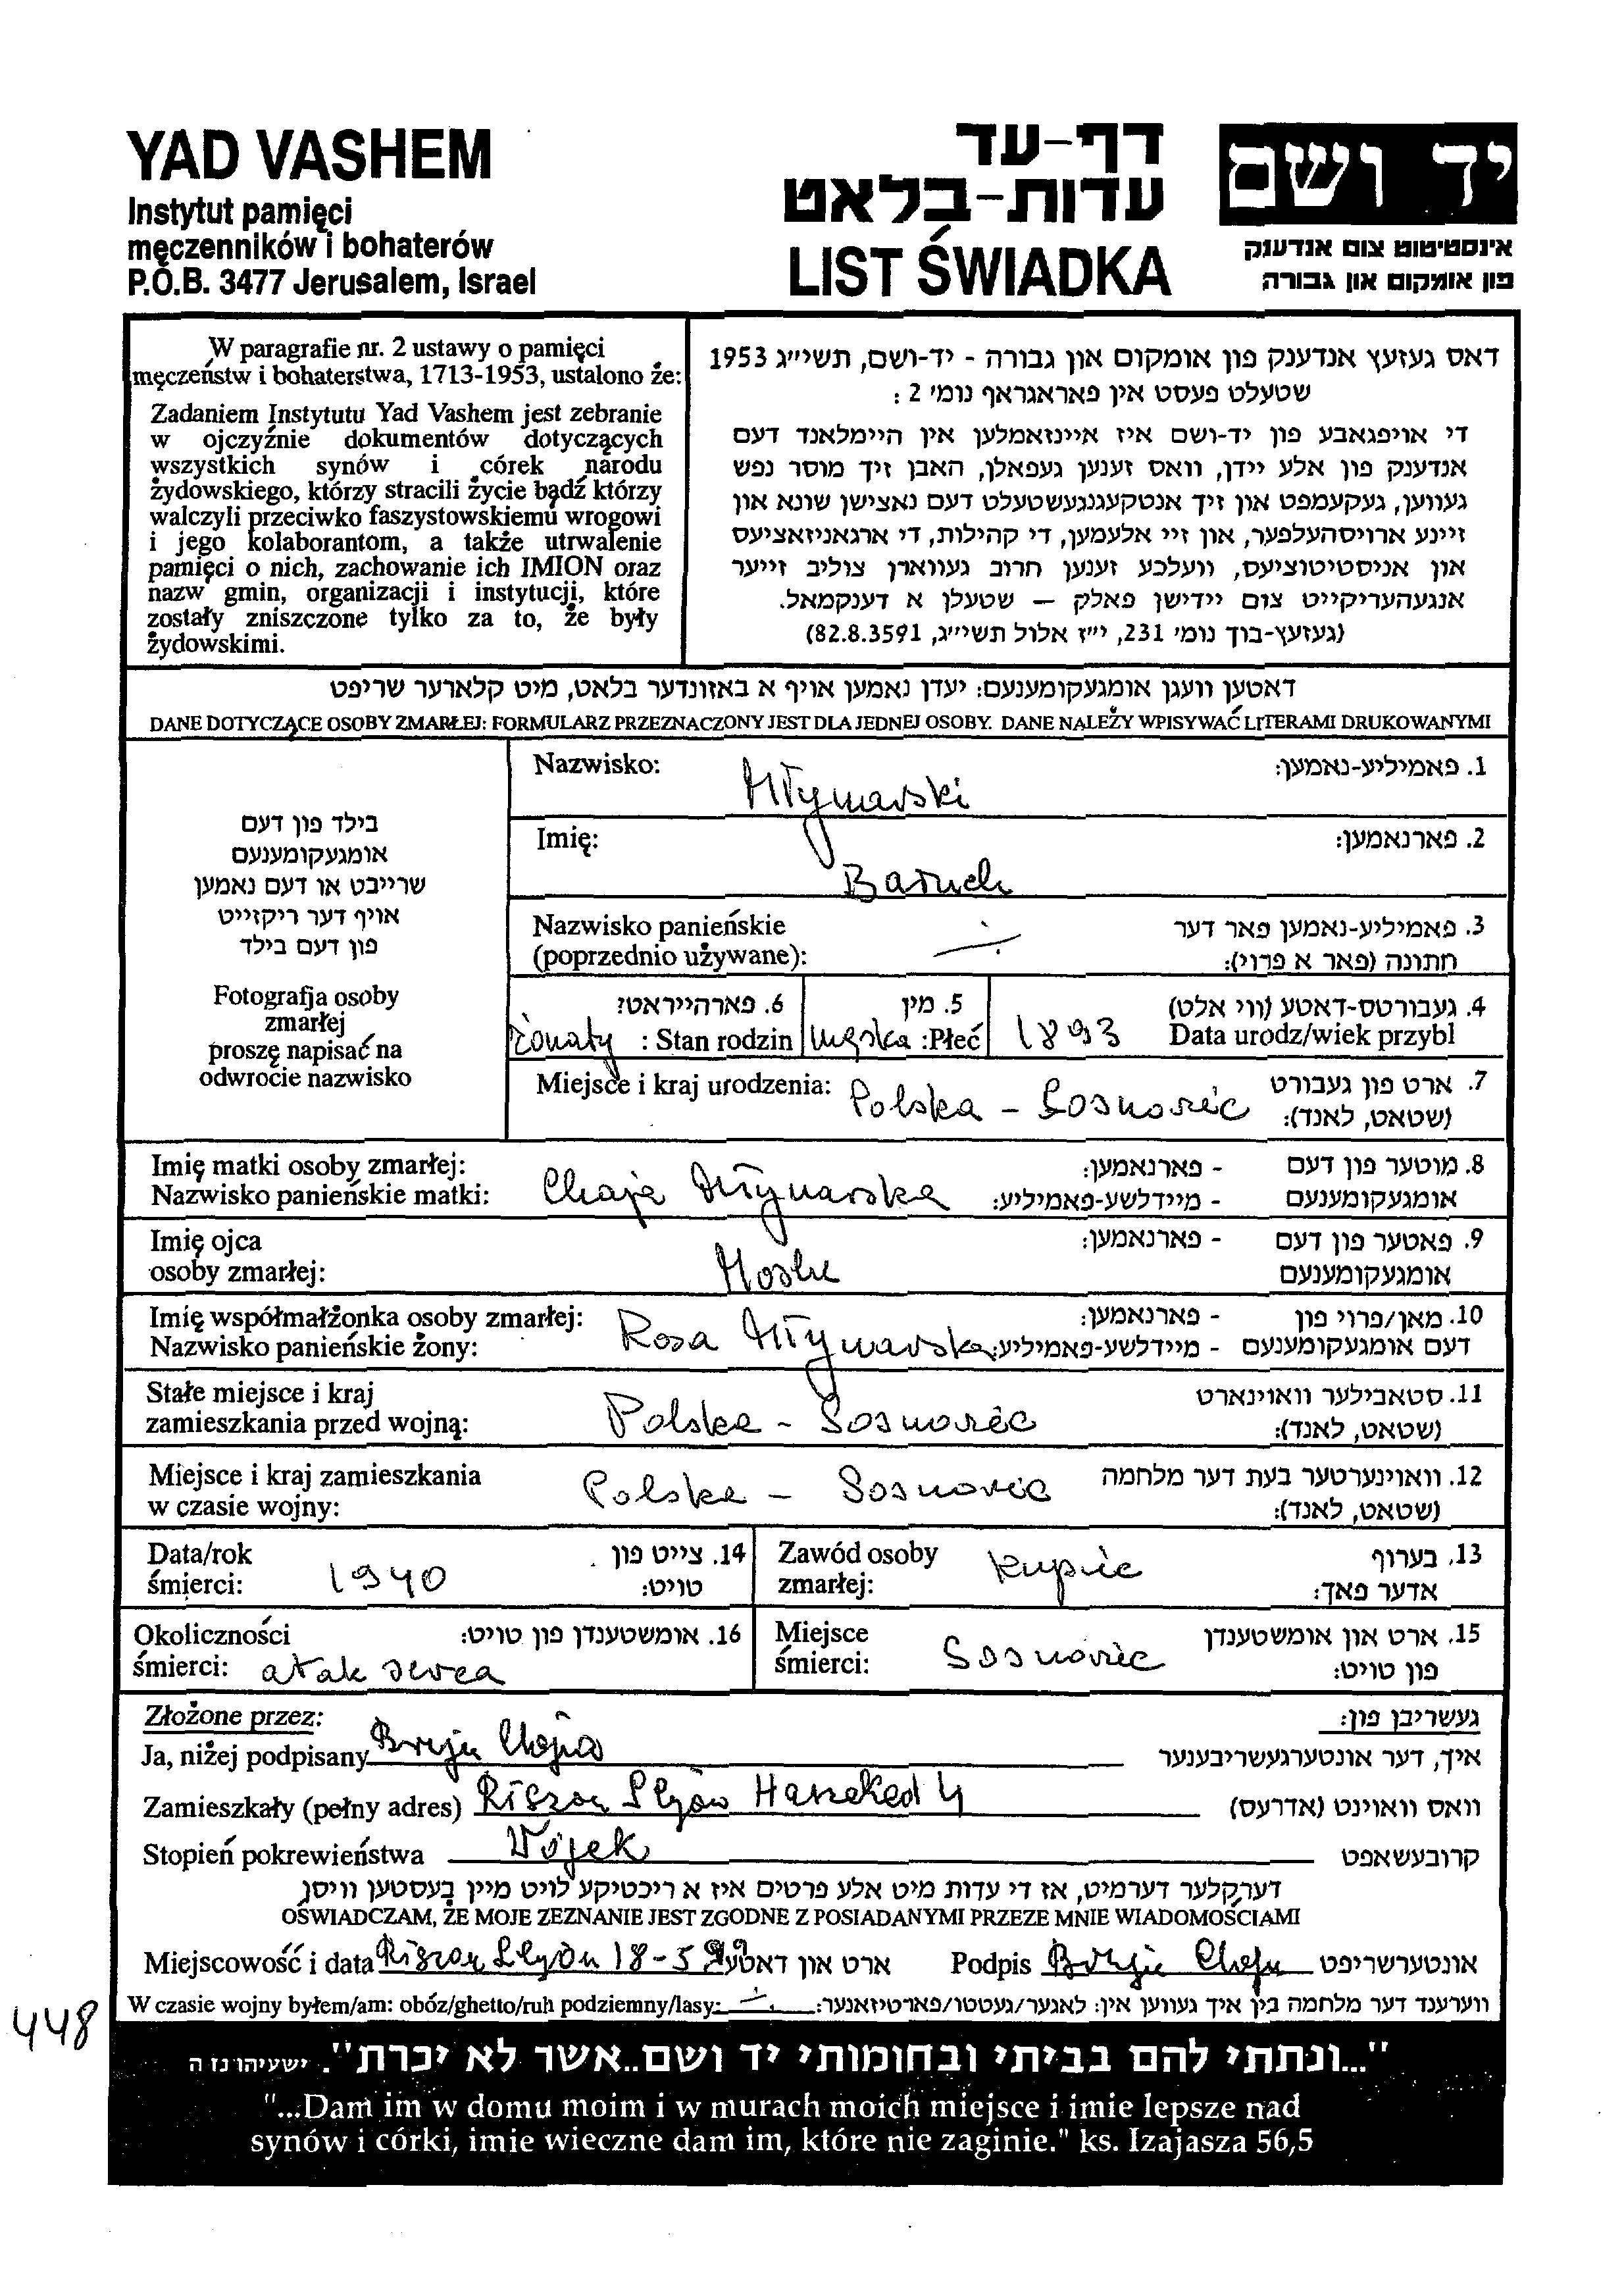 YAD VASHEM
Instytut pamięci
męczenników i bohaterów
P.O.B. 3477 Jerusalem, Israel
דף-עד
עדות-בלאט
LIST ŚWIADKA
יד ושם
אינסטיטוט צום אנדענק
פון אומקום און גבורה
W paragrafie nr. 2 ustawy o pamięci
męczeństw i bohaterstwa, 1713-1953, ustalono że:
Zadaniem Instytutu Yad Vashem jest zebranie
w ojczyźnie dokumentów dotyczących
wszystkich synów i córek narodu
żydowskiego, którzy stracili życie bądź którzy
walczyli przeciwko faszystowskiemu wrogowi
i jego kolaborantom, a także utrwalenie
pamięci o nich, zachowanie ich IMION oraz
nazw gmin, organizacji i instytucji, które
zostały zniszczone tylko za to, że były
żydowskimi.
דאס געזעץ אנדענק פון אומקום און גבורה - יד-ושם, תשי״ג 1953
שטעלט פעסט אין פאראגראף נומ׳ 2 :
די אויפגאבע פון יד-ושם איז איינזאמלען אין היימלאנד דעם
אנדענק פון אלע יידן, וואס זענען געפאלן, האבן זיך מוסר נפש
געווען, געקעמפט און זיך אנטקעגנגעשטעלט דעם נאצישן שונא און
זיינע ארויסהעלפער, און זיי אלעמען, די קהילות, די ארגאניזאציעס
און אניסטיטוציעס, וועלכע זענען חרוב געווארן צוליב זייער
אנגעהעריקייט צום יידישן פאלק – שטעלן א דענקמאל.
(געזעץ-בוך נומ׳ 231, י״ז אלול תשי״ג, 82.8.3591)
דאטען וועגן אומגעקומענעם: יעדן נאמען אויף א באזונדער בלאט, מיט קלארער שריפט
DANE DOTYCZĄCE OSOBY ZMARŁEJ: FORMULARZ PRZEZNACZONY JEST DLA JEDNEJ OSOBY. DANE NALEŻY WPISYWAĆ LITERAMI DRUKOWANYMI
בילד פון דעם
אומגעקומענעם
שרייבט או דעם נאמען
אויף דער ריקזייט
פון דעם בילד
Fotografja osoby
zmarłej
proszę napisać na
odwrocie nazwisko
Nazwisko: Młynarski 1. פאמיליע-נאמען:
Imię: Baruch 2. פארנאמען:
Nazwisko panieńskie 3. פאמיליע-נאמען פאר דער
(poprzednio używane): חתונה (פאר א פרוי):
6. פארהייראט? 5. מין 4. געבורטס-דאטע (ווי אלט)
Żonaty : Stan rodzin męska :Płeć 1893 Data urodz/wiek przybl
Miejsce i kraj urodzenia: Polska - Sosnowiec 7. ארט פון געבורט
(שטאט, לאנד):
Imię matki osoby zmarłej: - פארנאמען: 8. מוטער פון דעם
Nazwisko panieńskie matki: Chaja Młynarska - מיידלשע-פאמיליע: אומגעקומענעם
Imię ojca - פארנאמען: 9. פאטער פון דעם
osoby zmarłej: Moshe אומגעקומענעם
Imię współmałżonka osoby zmarłej: - פארנאמען: 10. מאן/פרוי פון
Nazwisko panieńskie żony: Rosa Młynarska - מיידלשע-פאמיליע: דעם אומגעקומענעם
Stałe miejsce i kraj 11. סטאבילער וואוינארט
zamieszkania przed wojną: Polska - Sosnowiec (שטאט, לאנד):
Miejsce i kraj zamieszkania 12. וואוינערטער בעת דער מלחמה
w czasie wojny: Polska - Sosnowiec (שטאט, לאנד):
Data/rok 14. צייט פון
śmierci: 1940 טויט:
Zawód osoby 13. בערוף
zmarłej: kupiec אדער פאך:
Okoliczności 16. אומשטענדן פון טויט:
śmierci: atak serca
Miejsce 15. ארט און אומשטענדן
śmierci: Sosnowiec פון טויט:
Złożone przez: געשריבן פון:
Ja, niżej podpisany Chaja איך, דער אונטערגעשריבענער
Zamieszkały (pełny adres) Riszon Lejon Haszeked 4 וואס וואוינט (אדרעס)
Stopień pokrewieństwa Wójek קרובעשאפט
דערקלער דערמיט, אז די עדות מיט אלע פרטים איז א ריכטיקע לויט מיין בעסטען וויסן
OŚWIADCZAM, ŻE MOJE ZEZNANIE JEST ZGODNE Z POSIADANYMI PRZEZE MNIE WIADOMOŚCIAMI
Miejscowość i data Riszon Lejon 18-5 99 ארט און דאטע Podpis Chaja אונטערשריפט
W czasie wojny byłem/am: obóz/ghetto/ruh podziemny/lasy: ווערענד דער מלחמה בין איך געווען אין: לאגער/געטטו/פארטיזאנער:
448
"...ונתתי להם בביתי ובחומותי יד ושם..אשר לא יכרת". ישעיהו נז ה
"...Dam im w domu moim i w murach moich miejsce i imie lepsze nad
synów i córki, imie wieczne dam im, które nie zaginie." ks. Izajasza 56,5